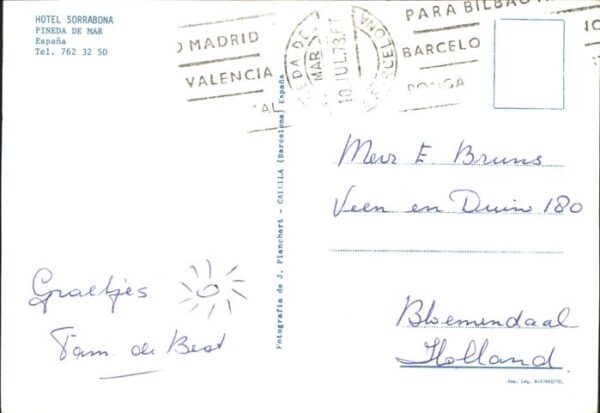 HOTEL SORRABONA
PINEDA DE MAR
España
Tel. 762 32 50
O MADRID
VALENCIA
PINEDA DE MAR
10 JUL 78
BARCELONA
PARA BILBAO
BARCELO
Fotografía de J. Planchart - CALELLA (Barcelona) España
Mevr E. Bruns
Veen en Duin 180
Bloemendaal
Holland
Groetjes
Fam. de Best